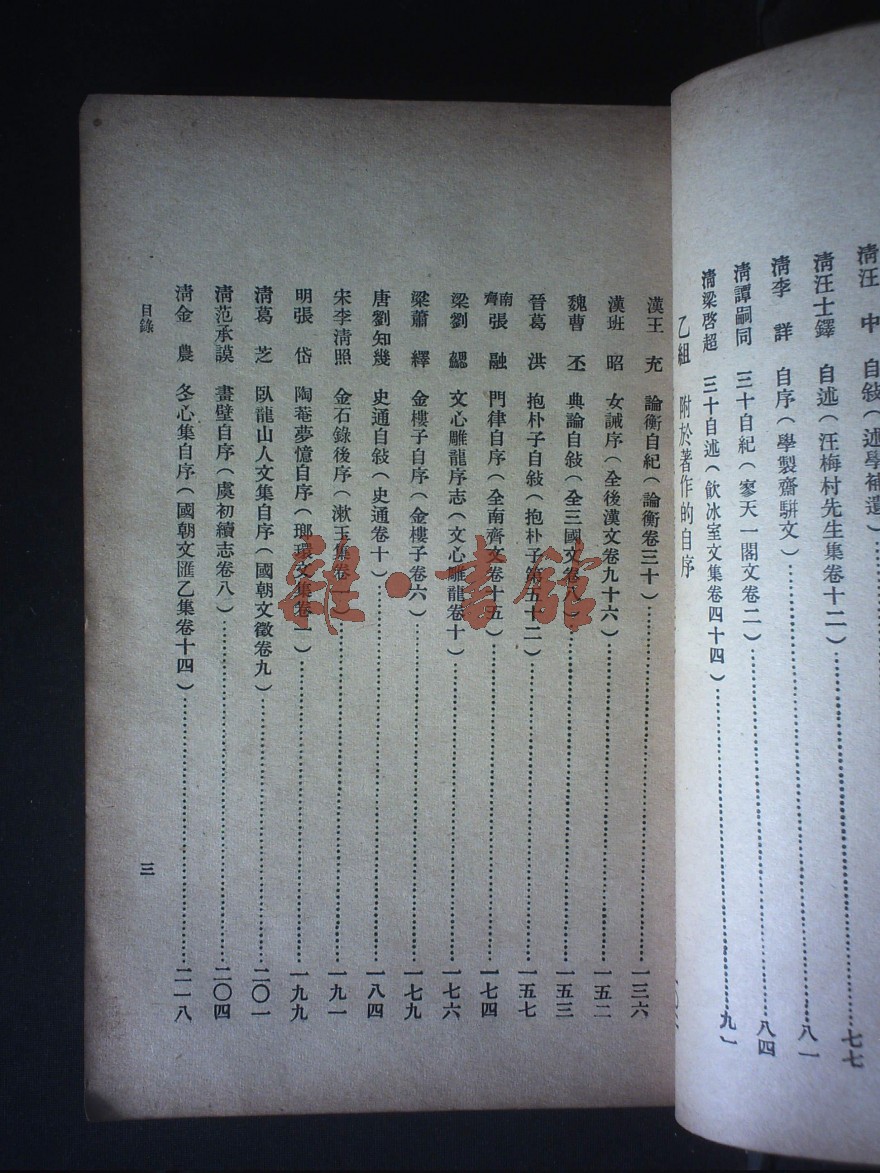 清汪　中　自敍（述學補遺）……七七
清汪士鐸　自述（汪梅村先生集卷十二）……八一
清李　詳　自序（學製齋駢文）……八四
清譚嗣同　三十自紀（寥天一閣文卷二）……
清梁啓超　三十自述（飲冰室文集卷四十四）……九一
乙組　附於著作的自序
漢王　充　論衡自紀（論衡卷三十）……一三六
漢班　昭　女誡序（全後漢文卷九十六）……一五二
魏曹　丕　典論自敍（全三國文卷八）……一五三
晉葛　洪　抱朴子自敍（抱朴子第五十二）……一五七
南齊張　融　門律自序（全南齊文卷十五）……一七四
梁劉　勰　文心雕龍序志（文心雕龍卷十）……一七六
梁蕭　繹　金樓子自序（金樓子卷六）……一七九
唐劉知幾　史通自敍（史通卷十）……一八四
宋李清照　金石錄後序（漱玉集卷一）……一九一
明張　岱　陶菴夢憶自序（瑯環文集卷一）……一九九
清葛　芝　臥龍山人文集自序（國朝文徵卷九）……二〇一
清范承謨　畫壁自序（虞初續志卷八）……二〇四
清金　農　冬心集自序（國朝文匯乙集卷十四）……二一八
目錄
三